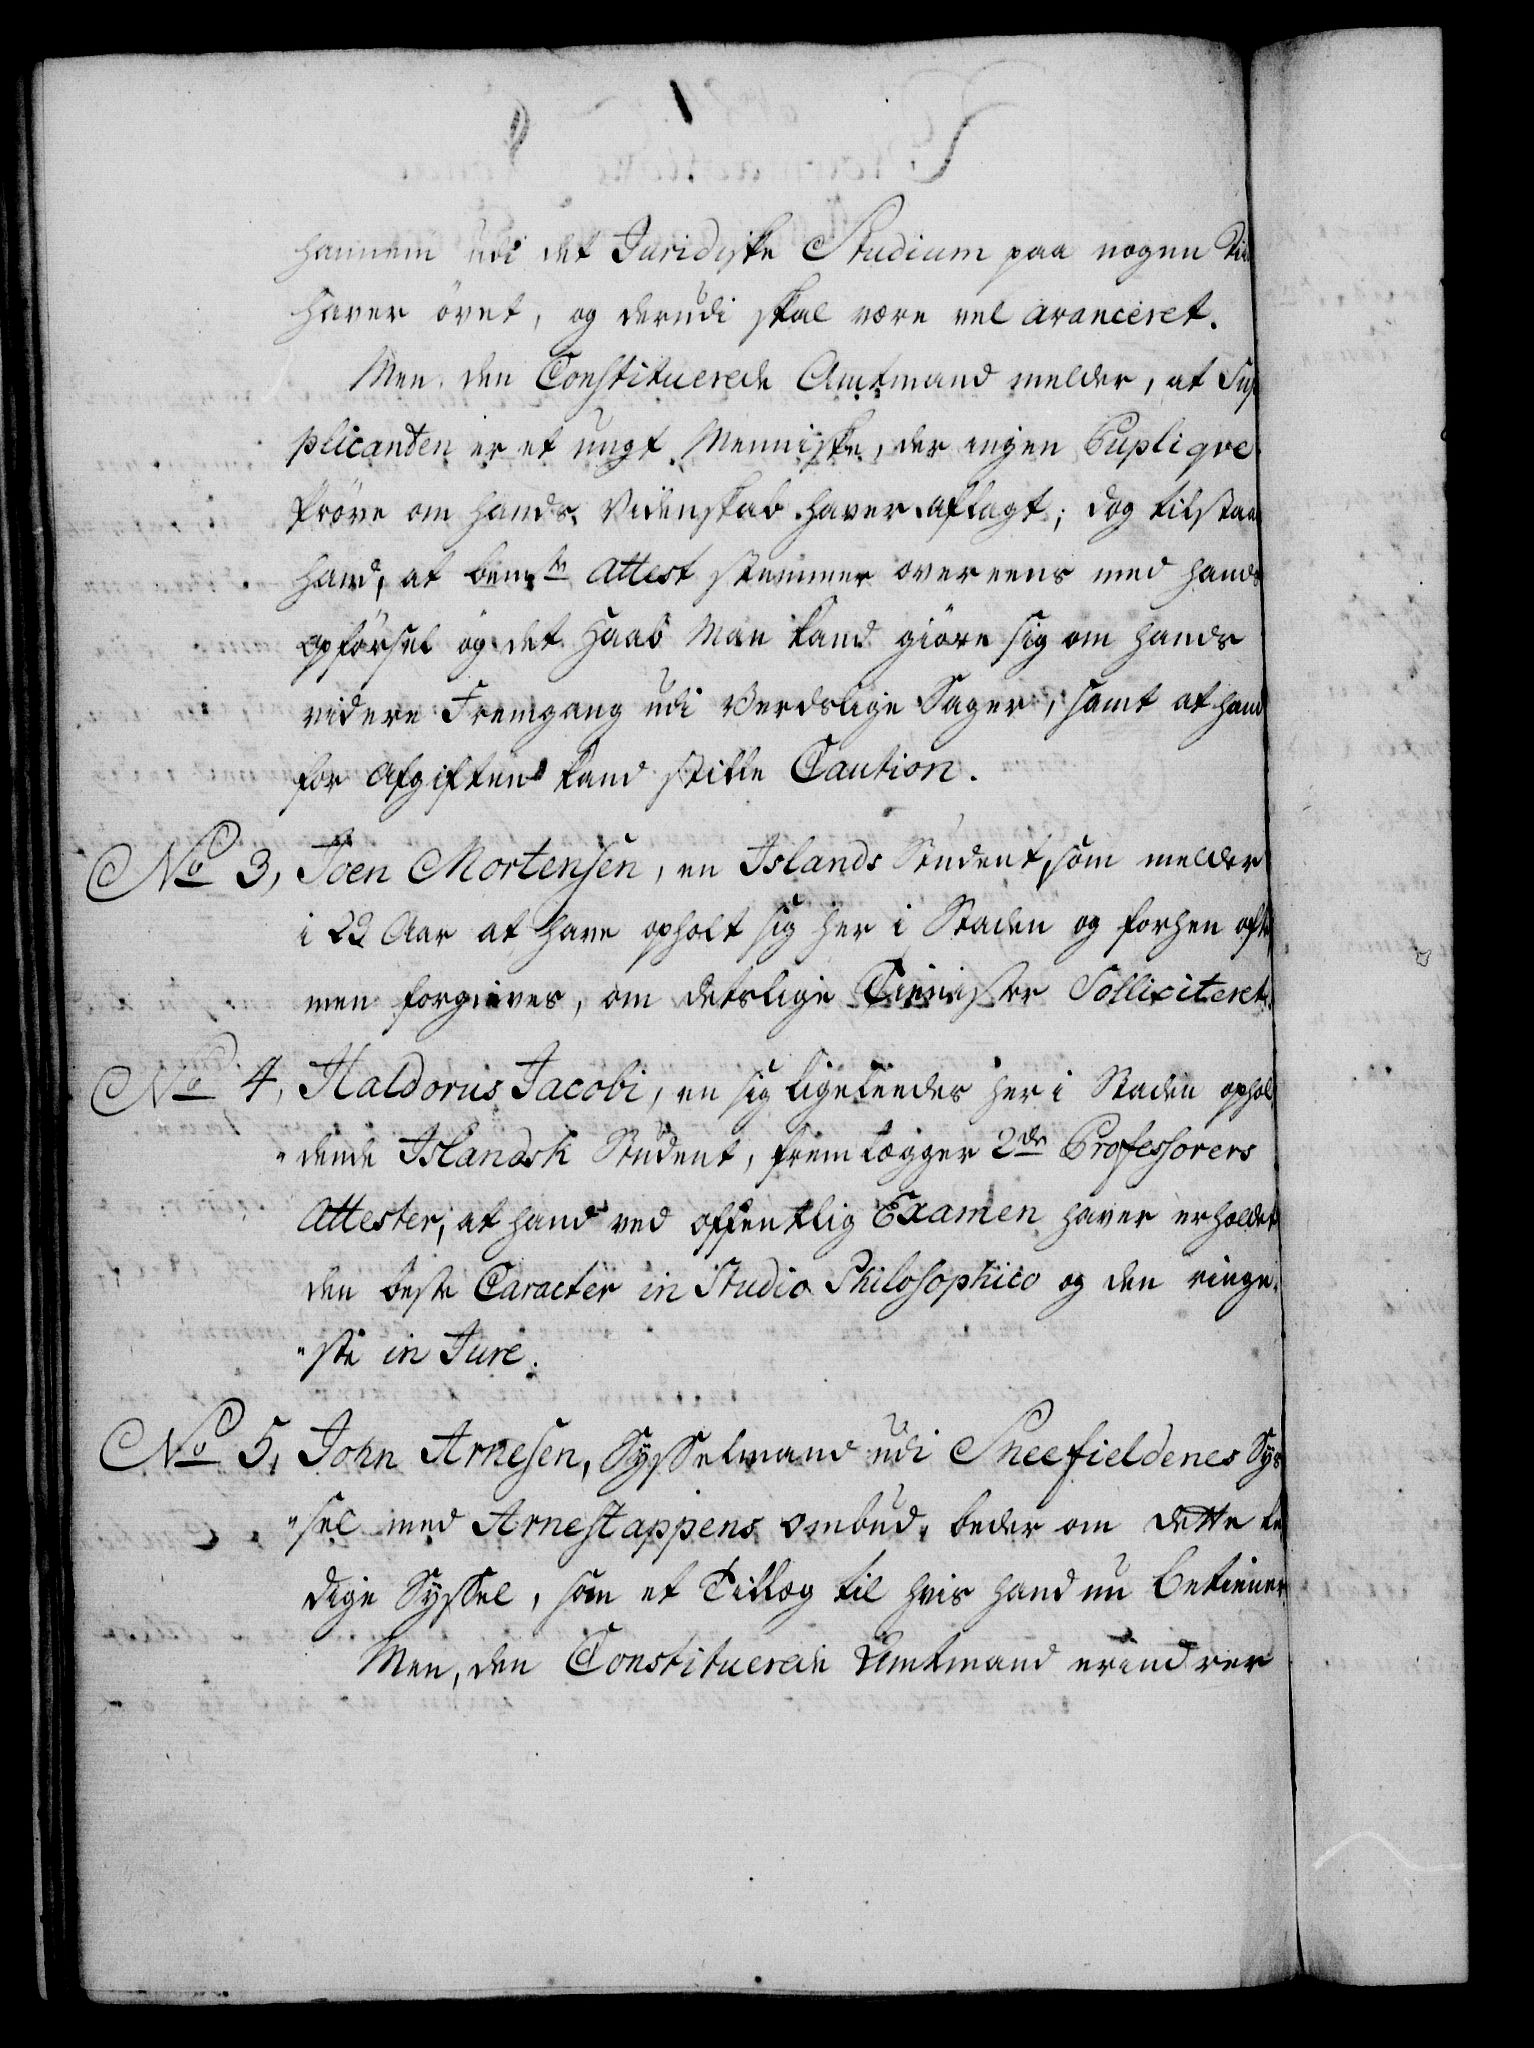 hannem udi det Juridiske Studium paa nogen Tiid
haver øvet, og derudi skal være vel avanceret.
Men den Constituerede Amtmand melder, at Sup
plicanten er et ungt Menniske, der ingen Pupliqve
Prøve om hands Videnskab haver aflagt; dog tilstaar
hand, at bem.te Attest stemmer overeens med hands
opførsel og det Haab Man kand giøre sig om hands
videre Fremgang udi Verdslige Sager, samt at hand
for Afgiften kand stille Caution.
No 3, Joen Mortensen, en Islands Student, som melder
i 22 Aar at have opholt sig her i Staden og forhen ofte,
men forgieves, om deslige Tienister Solliciteret.
No 4, Haldorus Jacobi, en sig ligeleedes her i Staden ophol
"dende Islandsk Student, fremlægger 2de Professorers
Attester, at hand ved offentlig Examen haver erholdet
den beste Caracter in Studio Philosophico og den ringe-
"ste in Jure.
No 5, John Arnesen, Sysselmand udi Sneefieldenes Sys
"sel med Arnestappens Ombud, beder om dette le
dige Syssel, som et Tillæg til hvis hand nu betiener.
Men, den Constituerede Amtmand erindrer